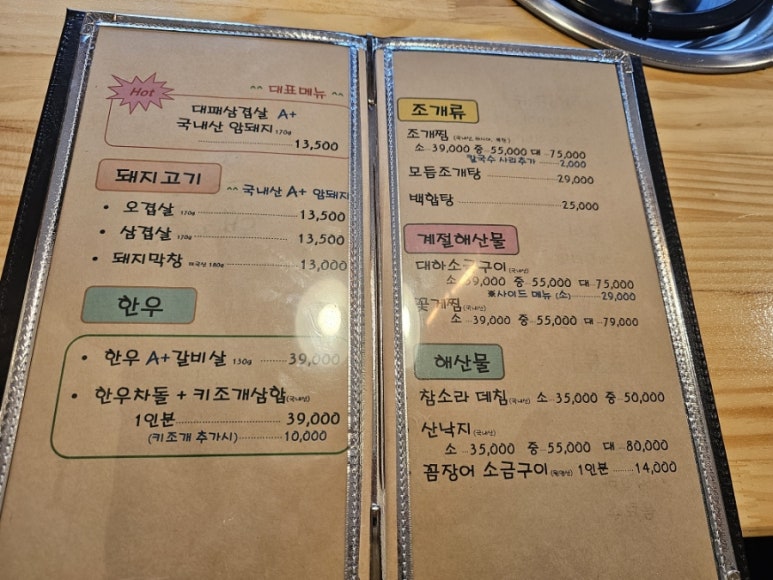 Hot
^^ 대표메뉴 ^^
대패삼겹살 A+
국내산 암돼지 170g
13,500
돼지고기
^^ 국내산 A+ 암돼지
• 오겹살 170g 13,500
• 삼겹살 170g 13,500
• 돼지막창 180g 13,000
한우
• 한우 A+갈비살 130g 39,000
• 한우차돌 + 키조개삼합(국내산)
1인분 39,000
(키조개 추가시) 10,000
조개류
조개찜
소 39,000 중 55,000 대 75,000
칼국수 사리추가 2,000
모듬조개탕 29,000
백합탕 25,000
계절해산물
대하소금구이(국내산)
소 39,000 중 55,000 대 75,000
※사이드 메뉴 (소) 29,000
꽃게찜(국내산)
소 39,000 중 55,000 대 79,000
해산물
참소라 데침(국내산) 소 35,000 중 50,000
산낙지(국내산)
소 35,000 중 55,000 대 80,000
꼼장어 소금구이 1인분 14,000